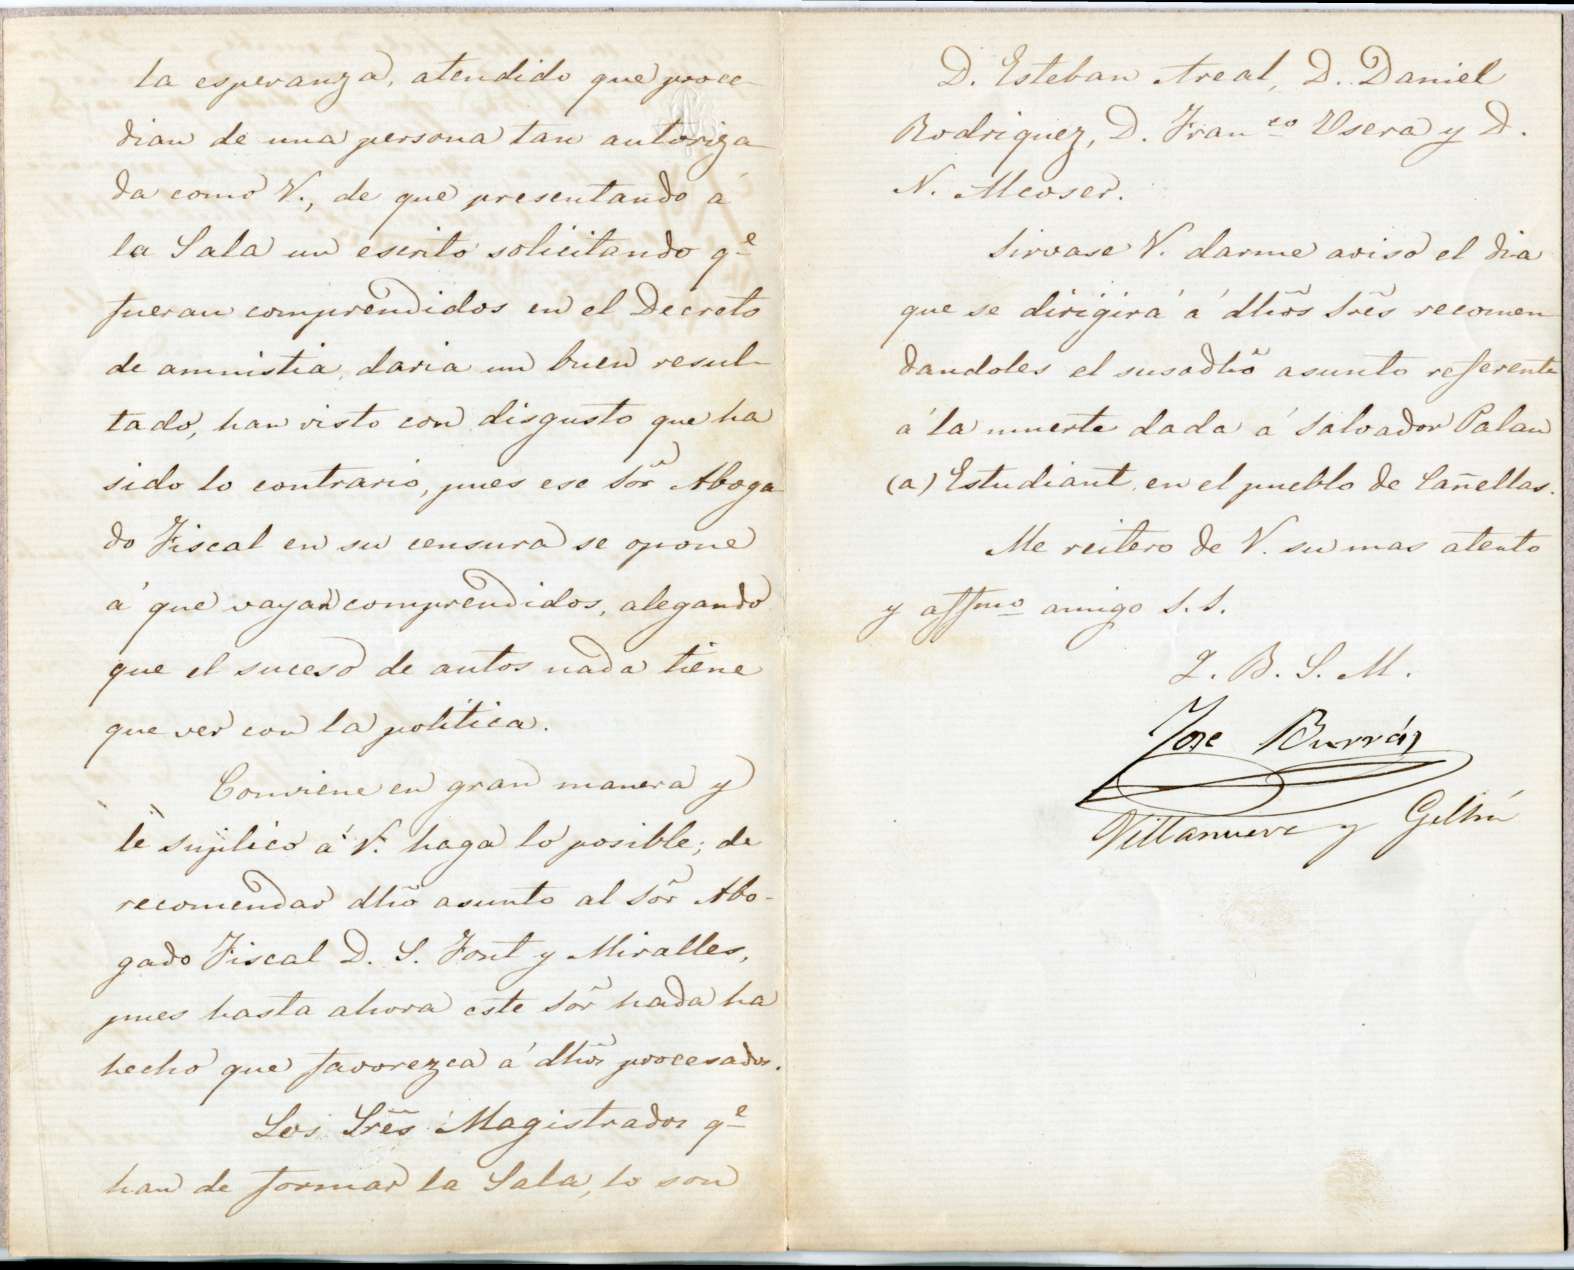 la esperanza, atendido que proce-
dian de una persona tan autoriza-
da como V., de que presentando á
la Sala un escrito solicitando qe
fueran comprendidos en el Decreto
de amnistia, daria un buen resul-
tado, han visto con disgusto que ha
sido lo contrario, pues ese Sõr Aboga
do Fiscal en su censura se opone
á que vayan comprendidos, alegando
que el suceso de autos nada tiene
que ver con la politica.
Conviene en gran manera y
le suplico á V. haga lo posible; de
recomendar dhõ asunto al Sõr Abo-
gado Fiscal D. S. Font y Miralles,
pues hasta ahora este Sõr nada ha
hecho que favorezca á dhõs procesados.
Los Srẽs Magistrados qe
han de formar la Sala, lo son
D. Esteban Areal, D. Daniel
Rodriguez, D. Franco Usera y D.
N. Mcoser.
Sirvase V. darme aviso el dia
que se dirigirá á dhõs Srẽs recomen
dandoles el susodhõ asunto referente
á la muerte dada á Salvador Palau
(a) Estudiant, en el pueblo de Cañellas.
Me reitero de V. su mas atento
y affmo amigo S. S.
Q. B. S. M.
Jose Burrás
Villanueva y Geltrú